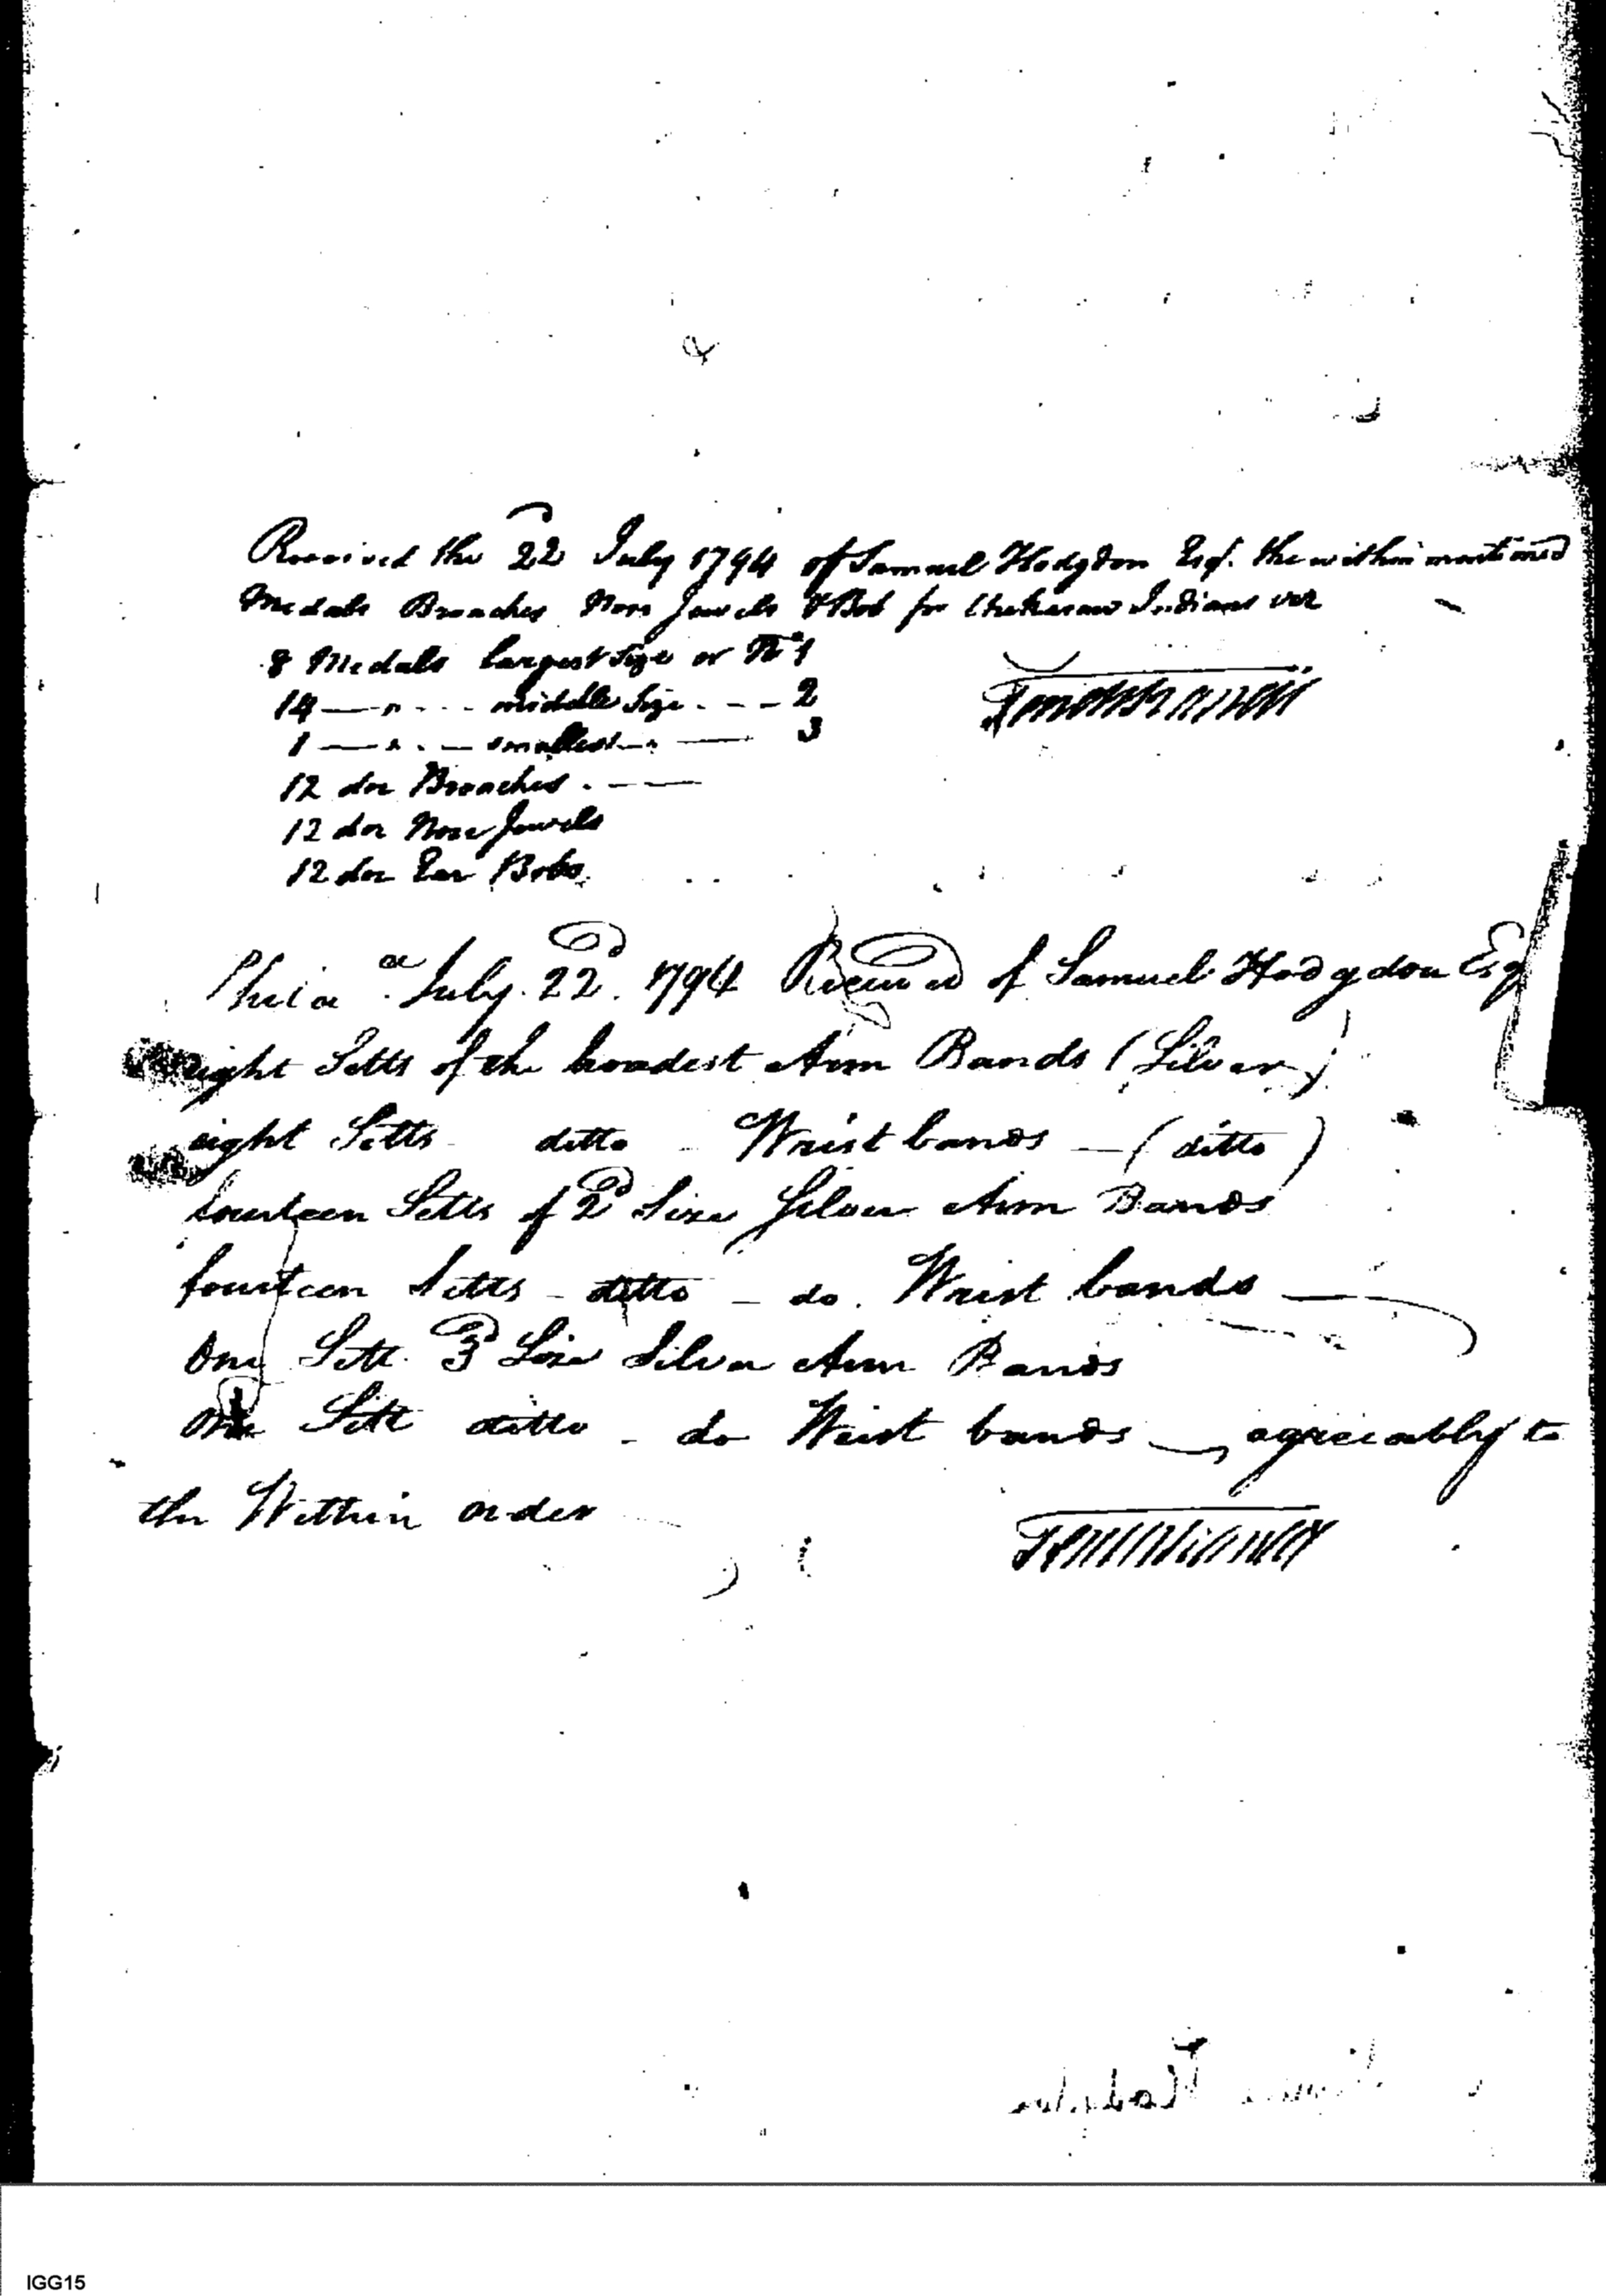 Received the 22d July 1794 of Samuel Hodgdon Esqr. the within mentioned
Medals Broaches Nose Jewels & Bob for Chekasaw Indians viz
8 Medals largest Size or No 1
14 — " - - - middle Size - - - 2
1 — " - — smallest — " — 3
12 doz Broaches . - —
12 doz Nose Jewels
12 doz Ear Bobs.
Phila July 22d. 1794 Received of Samuel Hodgdon Esq
eight Setts of the broadest Arm Bands (Silver)
eight Setts ditto - Wrist bands — (ditto)
fourteen Setts of 2d Size Silver Arm Bands
fourteen Setts - ditto - do. Wrist bands —
One Sett 3d Size Silver Arm Bands
One Sett ditto - do Wrist bands — agreeably to
the Within order
IGG15